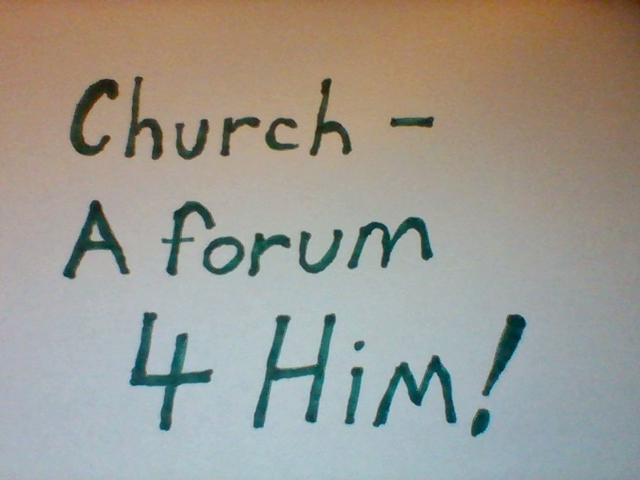 Church -
A forum
4 Him!